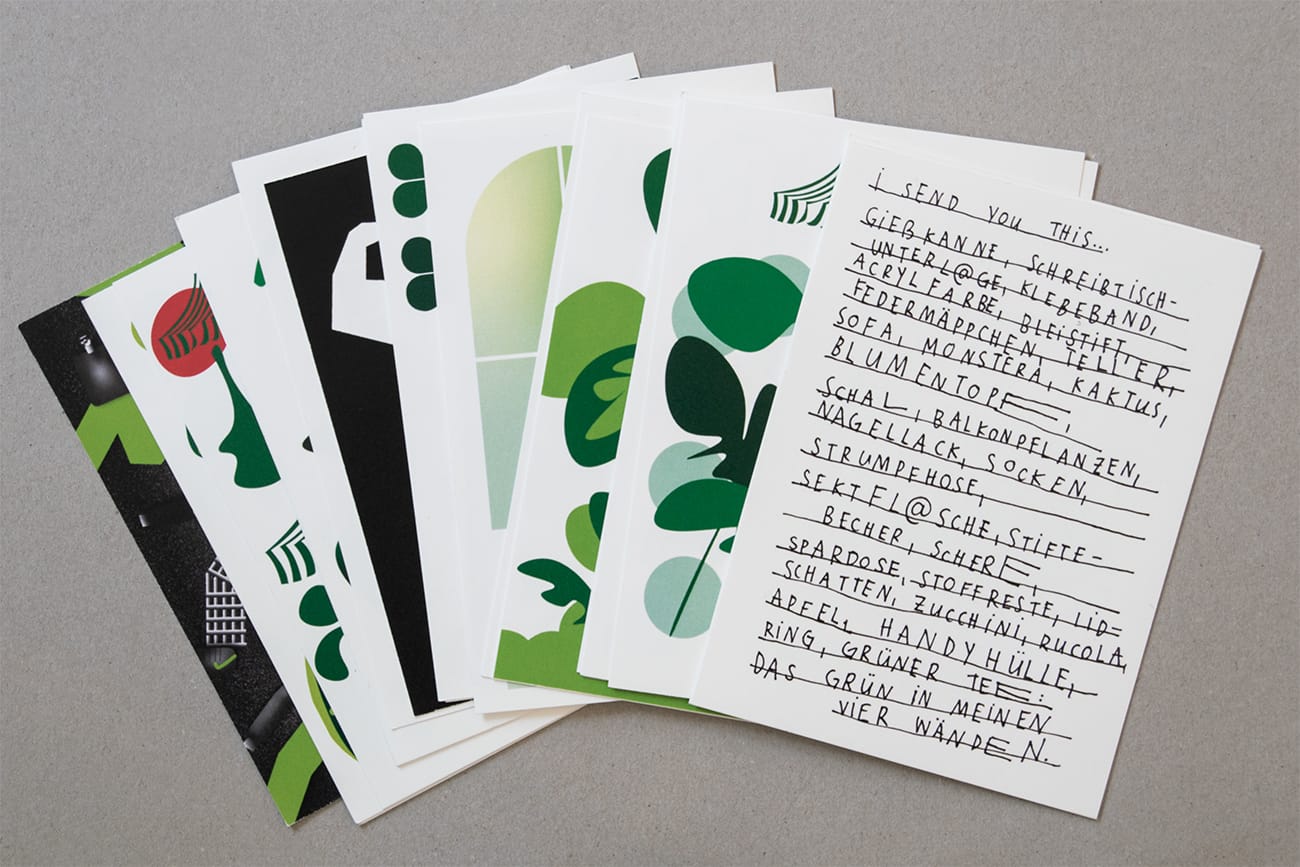 i SEND YOU THIS...
GiEßKANNE, SCHREiBTiSCH-
UNTERL@GE, KLEBEBAND,
ACRYLFARBE, BLEiSTiFT,
FEDERMÄPPCHEN, TELLER,
SOFA, MONSTERA, KAKTUS,
BLUMENTOPF,
SCHAL, BALKONPFLANZEN,
NAGELLACK, SOCKEN,
STRUMPFHOSE,
SEKTFL@SCHE, STiFTE-
BECHER, SCHERE,
SPARDOSE, STOFFRESTE, LiD-
SCHATTEN, ZUCCHiNi, RUCOLA,
APFEL, HANDYHÜLLE,
RiNG, GRÜNER TEE:
DAS GRÜN iN MEiNEN
ViER WÄNDEN.